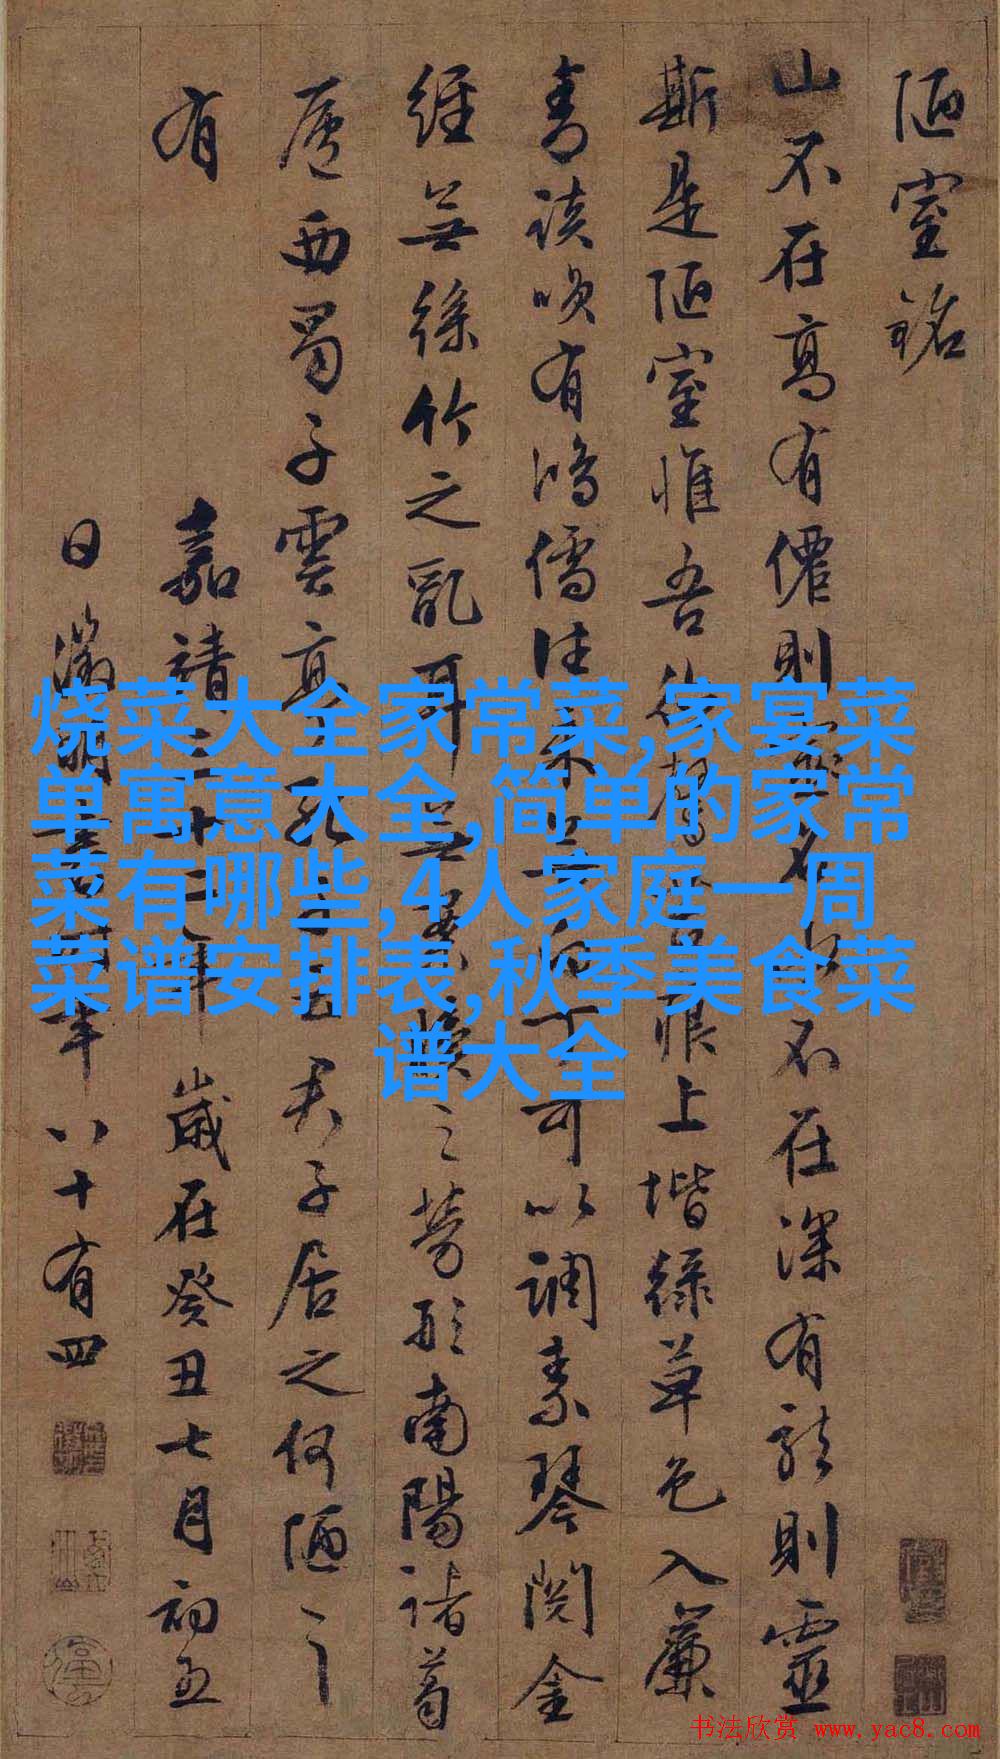 陋室銘
山不在高有僊則靈名水不在深有龍則靈
斯是陋室惟吾德馨苔痕上堦綠草色入簾
青談唉有鴻儒往来無白丁可以調素琴閱金
經無絲竹之亂耳無案牘之勞形南陽諸葛
廬西蜀子雲亭孔子云君子居之何陋之
有
嘉靖三十二年歲在癸丑七月初五
日徵明書時年八十有四
烧菜大全家常菜,家宴菜
单寓意大全,简单的家常
菜有哪些,4人家庭一周
菜谱安排表,秋季美食菜
谱大全
书法欣赏 www.yac8.com